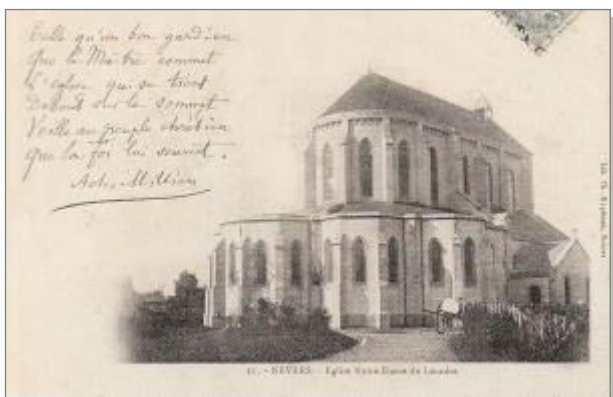 Telle qu'un bon gardien
Que le Maître commet
L'église qui se tient
Debout sur le sommet
Veille au peuple chrétien
Que la foi lui soumet.
Achille Millien
11. - NEVERS - Eglise Notre-Dame de Lourdes
Nevers